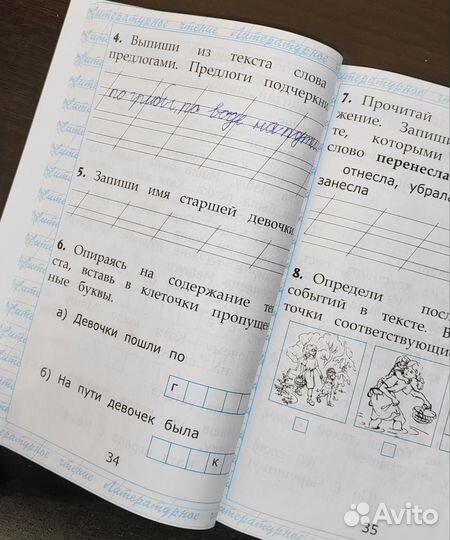 Литературное чтение Литературное
4. Выпиши из текста слова
предлогами. Предлоги подчеркни
по грибы, по воде на пути
5. Запиши имя старшей девочки.
6. Опираясь на содержание
ста, вставь в клеточки пропущен
ные буквы.
а) Девочки пошли по
г
б) На пути девочек была
к
чтение Литературное
34
7. Прочитай
жение. Запиши
те, которыми
слово перенесла
отнесла, убрала
занесла
8. Определи
событий в тексте.
точки соответствующие
35
Avito